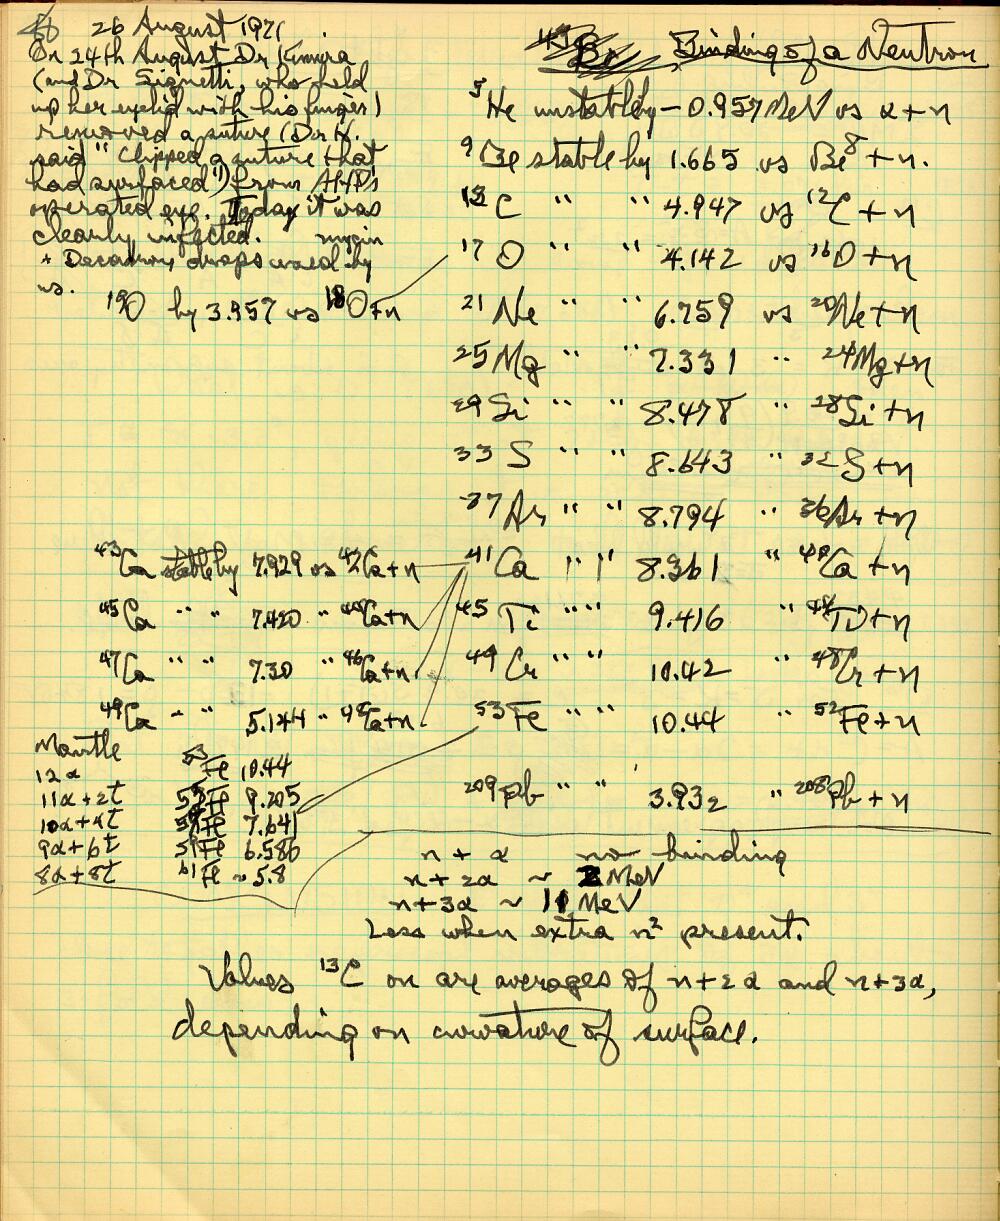 26 August 1971
On 24th August Dr Kimura
(and Dr Signetti, who held
up her eyelid with his finger)
removed a suture (Dr K.
said "Clipped a suture that
had surfaced") from AHP's
operated eye. Today it was
clearly infected. mycin
drops used by
us.
¹⁹O by 3.957 vs ¹⁸O+n
Binding of a Neutron
⁵He unstable by −0.957 MeV vs α+n
⁹Be stable by 1.665 vs Be⁸+n.
¹³C " " 4.947 vs ¹²C+n
¹⁷O " " 4.142 vs ¹⁶O+n
²¹Ne " " 6.759 vs ²⁰Ne+n
²⁵Mg " " 7.331 " ²⁴Mg+n
²⁹Si " " 8.478 " ²⁸Si+n
³³S " " 8.643 " ³²S+n
³⁷Ar " " 8.794 " ³⁶Ar+n
⁴³Ca stable by 7.929 vs ⁴²Ca+n
⁴¹Ca " " 8.361 " ⁴⁰Ca+n
⁴⁵Ca " " 7.420 " ⁴⁴Ca+n
⁴⁵Ti " " 9.416 " ⁴⁴Ti+n
⁴⁷Ca " " 7.30 " ⁴⁶Ca+n
⁴⁹Cr " " 10.42 " ⁴⁸Cr+n
⁴⁹Ca " " 5.144 " ⁴⁸Ca+n
⁵³Fe " " 10.44 " ⁵²Fe+n
²⁰⁹Pb " " 3.932 " ²⁰⁸Pb+n
Mantle
12α ⁵³Fe 10.44
11α+2t ⁵⁵Fe 9.205
10α+4t ⁵⁷Fe 7.641
9α+6t ⁵⁹Fe 6.580
8α+8t ⁶¹Fe ~5.8
n + α no binding
n+2α ~ 2 MeV
n+3α ~ 11 MeV
Less when extra n² present.
Values ¹³C on are averages of n+2α and n+3α,
depending on curvature of surface.